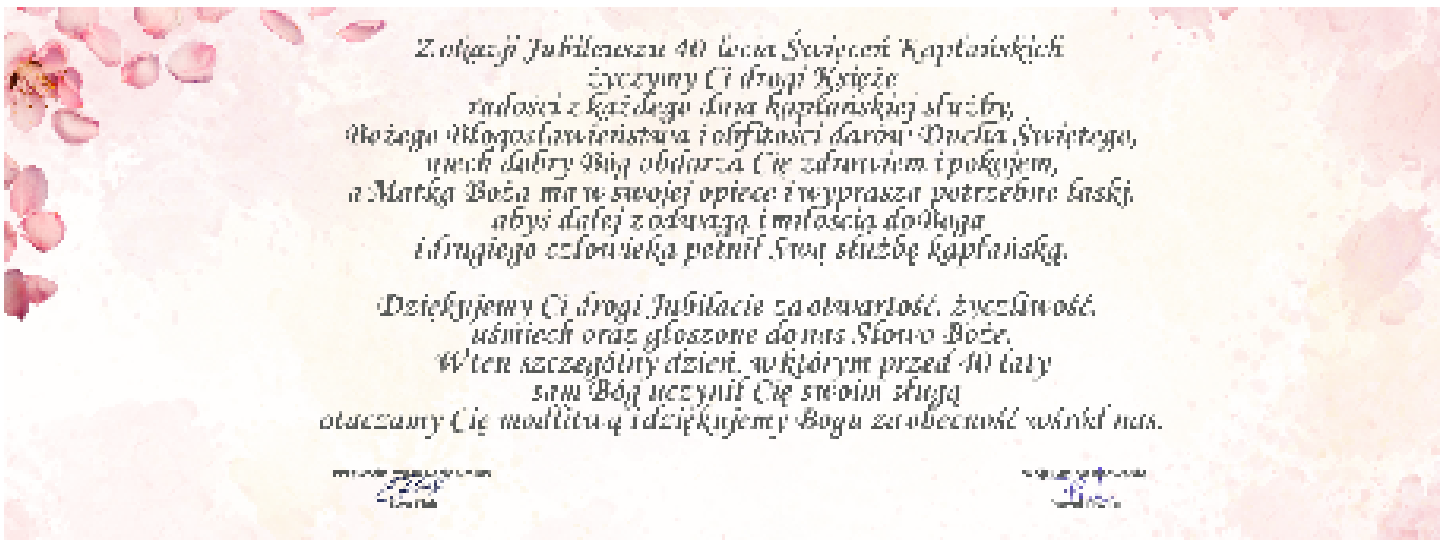 Z okazji Jubileuszu 40-lecia Święceń Kapłańskich
życzymy Ci drogi Księże
radości z każdego dnia kapłańskiej służby,
Bożego Błogosławieństwa i obfitości darów Ducha Świętego,
niech dobry Bóg obdarza Cię zdrowiem i pokojem,
a Matka Boża ma w swojej opiece i wyprasza potrzebne łaski,
abyś dalej z odwagą i miłością do Boga
i drugiego człowieka pełnił Swą służbę kapłańską.
Dziękujemy Ci drogi Jubilacie za otwartość, życzliwość,
uśmiech oraz głoszone do nas Słowo Boże.
W ten szczególny dzień, w którym przed 40 laty
sam Bóg uczynił Cię swoim sługą
otaczamy Cię modlitwą i dziękujemy Bogu za obecność wśród nas.